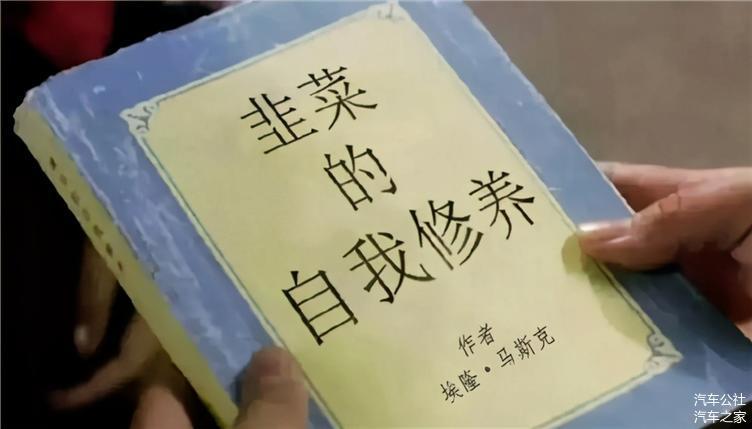 韭菜
的
自我修养
作者
埃隆·马斯克
汽车公社
汽车之家